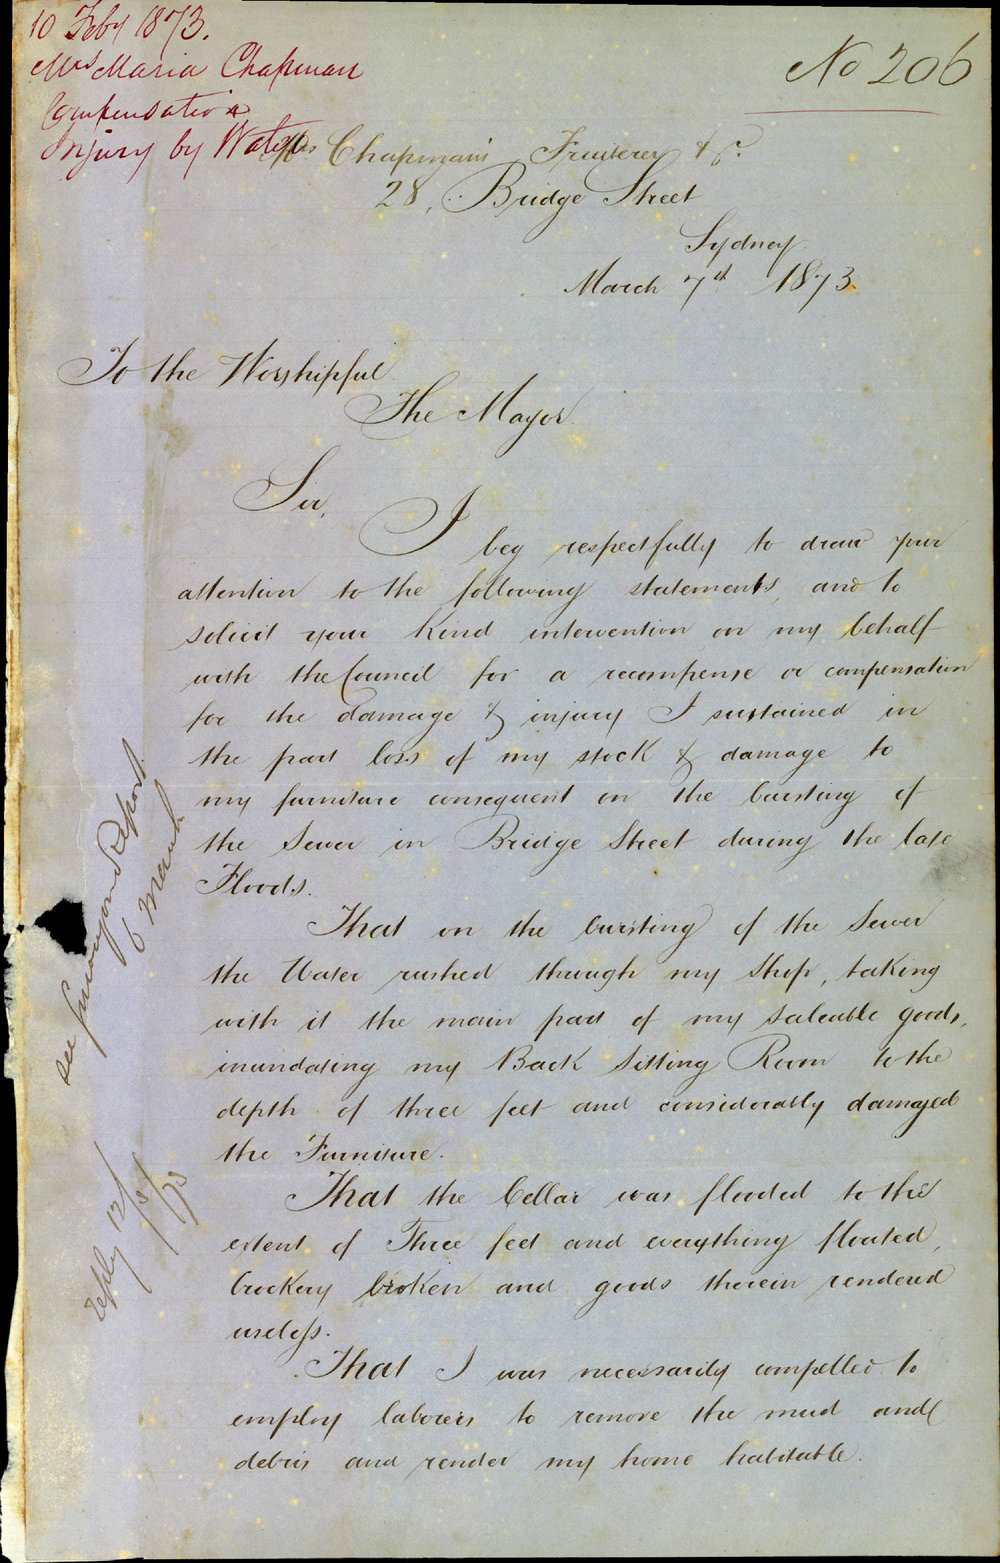 10 Feby 1873.
Mrs Maria Chapman
Compensation
Injury by Water
No 206
Mrs Chapman Fruiterer &c.
28, Bridge Street
Sydney.
March 7th 1873.
To the Worshipful
The Mayor.
Sir,
I beg respectfully to draw your
attention to the following statements, and to
solicit your kind intervention on my behalf
with the Council for a recompense or compensation
for the damage & injury I sustained in
the part loss of my stock & damage to
my furniture consequent on the bursting of
the Sewer in Bridge Street during the late
Floods.
That on the bursting of the Sewer
the Water rushed through my Shop, taking
with it the main part of my saleable goods,
inundating my Back Sitting Room to the
depth of three feet and considerably damaged
the Furniture.
That the Cellar was flooded to the
extent of Three feet and everything floated,
Crockery broken and goods therein rendered
useless.
That I was necessarily compelled to
employ laborers to remove the mud and
debris and render my home habitable.
see Surveyors Report
6 March
Reply 12/3/73